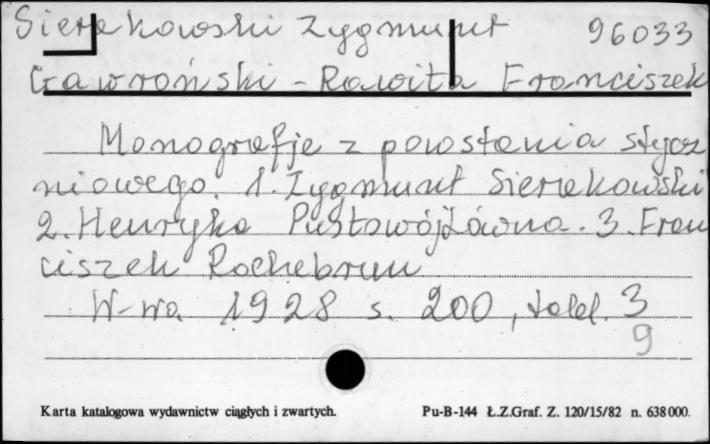 Sierakowski Zygmunt 96033
Gawroński-Rawita Franciszek
Monografje z powstania stycz
niowego. 1. Zygmunt Sierakowski
2. Henryka Pustowójtówna. 3. Fran
ciszek Rochebrun
W-wa 1928 s. 200, tabl. 3
9
Karta katalogowa wydawnictw ciągłych i zwartych. Pu-B-144 Ł.Z.Graf. Z. 120/15/82 n. 638000.